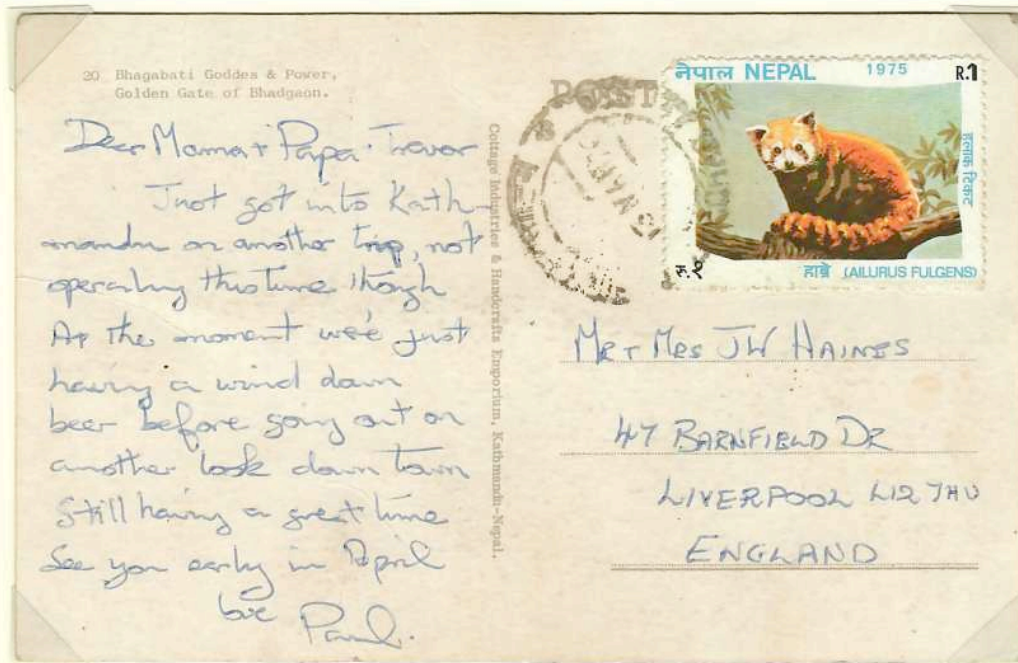 20 Bhagabati Goddes & Power,
Golden Gate of Bhadgaon.
Dear Mama + Papa + Trevor
Just got into Kath-
mandu on another trip, not
operating this time though
At the moment we're just
having a wind down
beer before going out on
another look down town
Still having a great time
See you early in April
love
Paul.
Cottage Industries & Handcrafts Emporium, Kathmandu-Nepal.
POST
नेपाल NEPAL 1975 R.1
हुलाक टिकट
रु.१
हाब्रे (AILURUS FULGENS)
Mr + Mrs JW HAINES
47 BARNFIELD DR
LIVERPOOL L12 7HU
ENGLAND